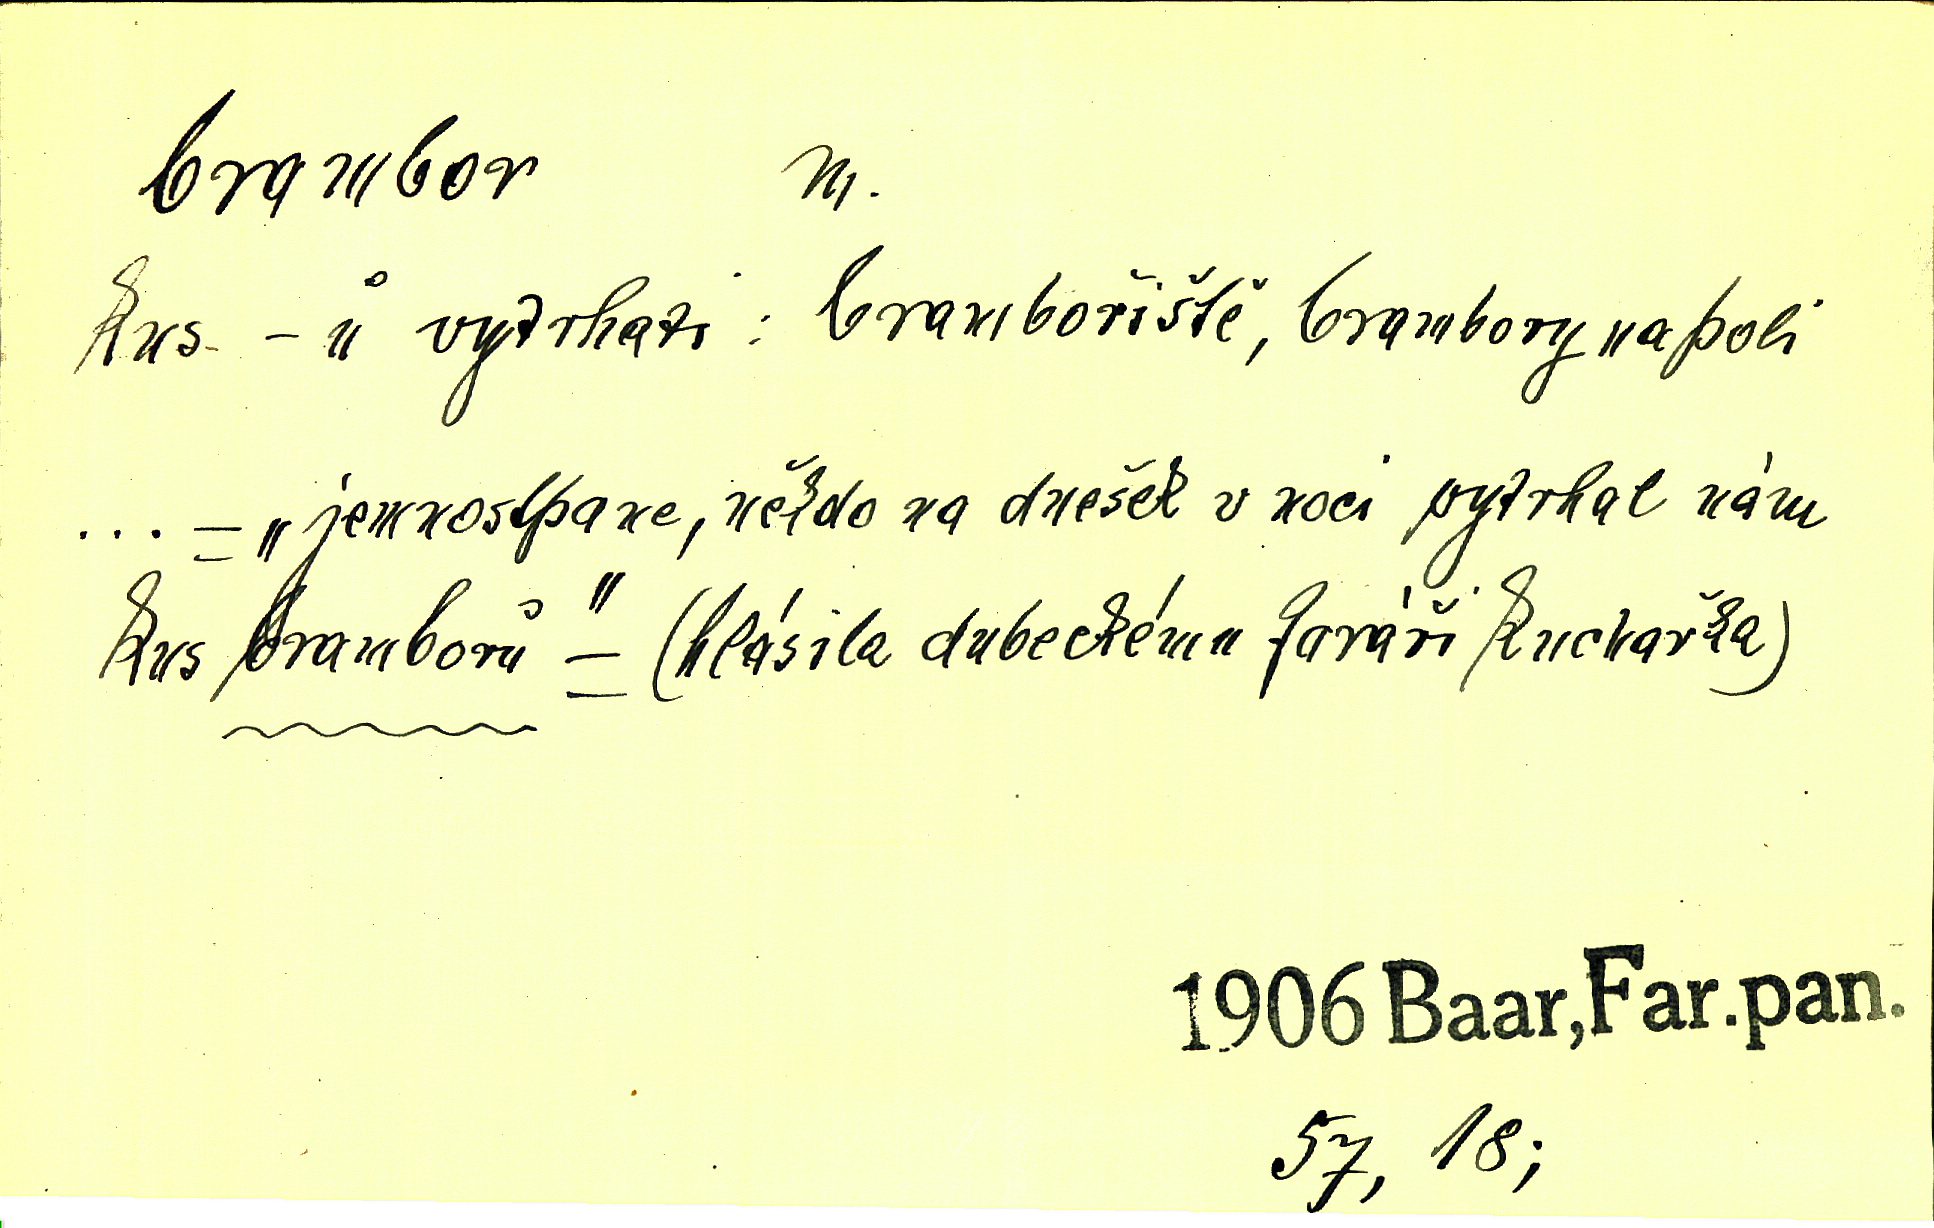 brambor m.
Kus -ů vytrhati: bramboriště, brambory na poli
... = „jemnostpane, někdo na dnešek v noci vytrhal nám
kus bramborů" = (hlásila dubeckému faráři kuchařka)
1906 Baar, Far. pan.
57, 18;